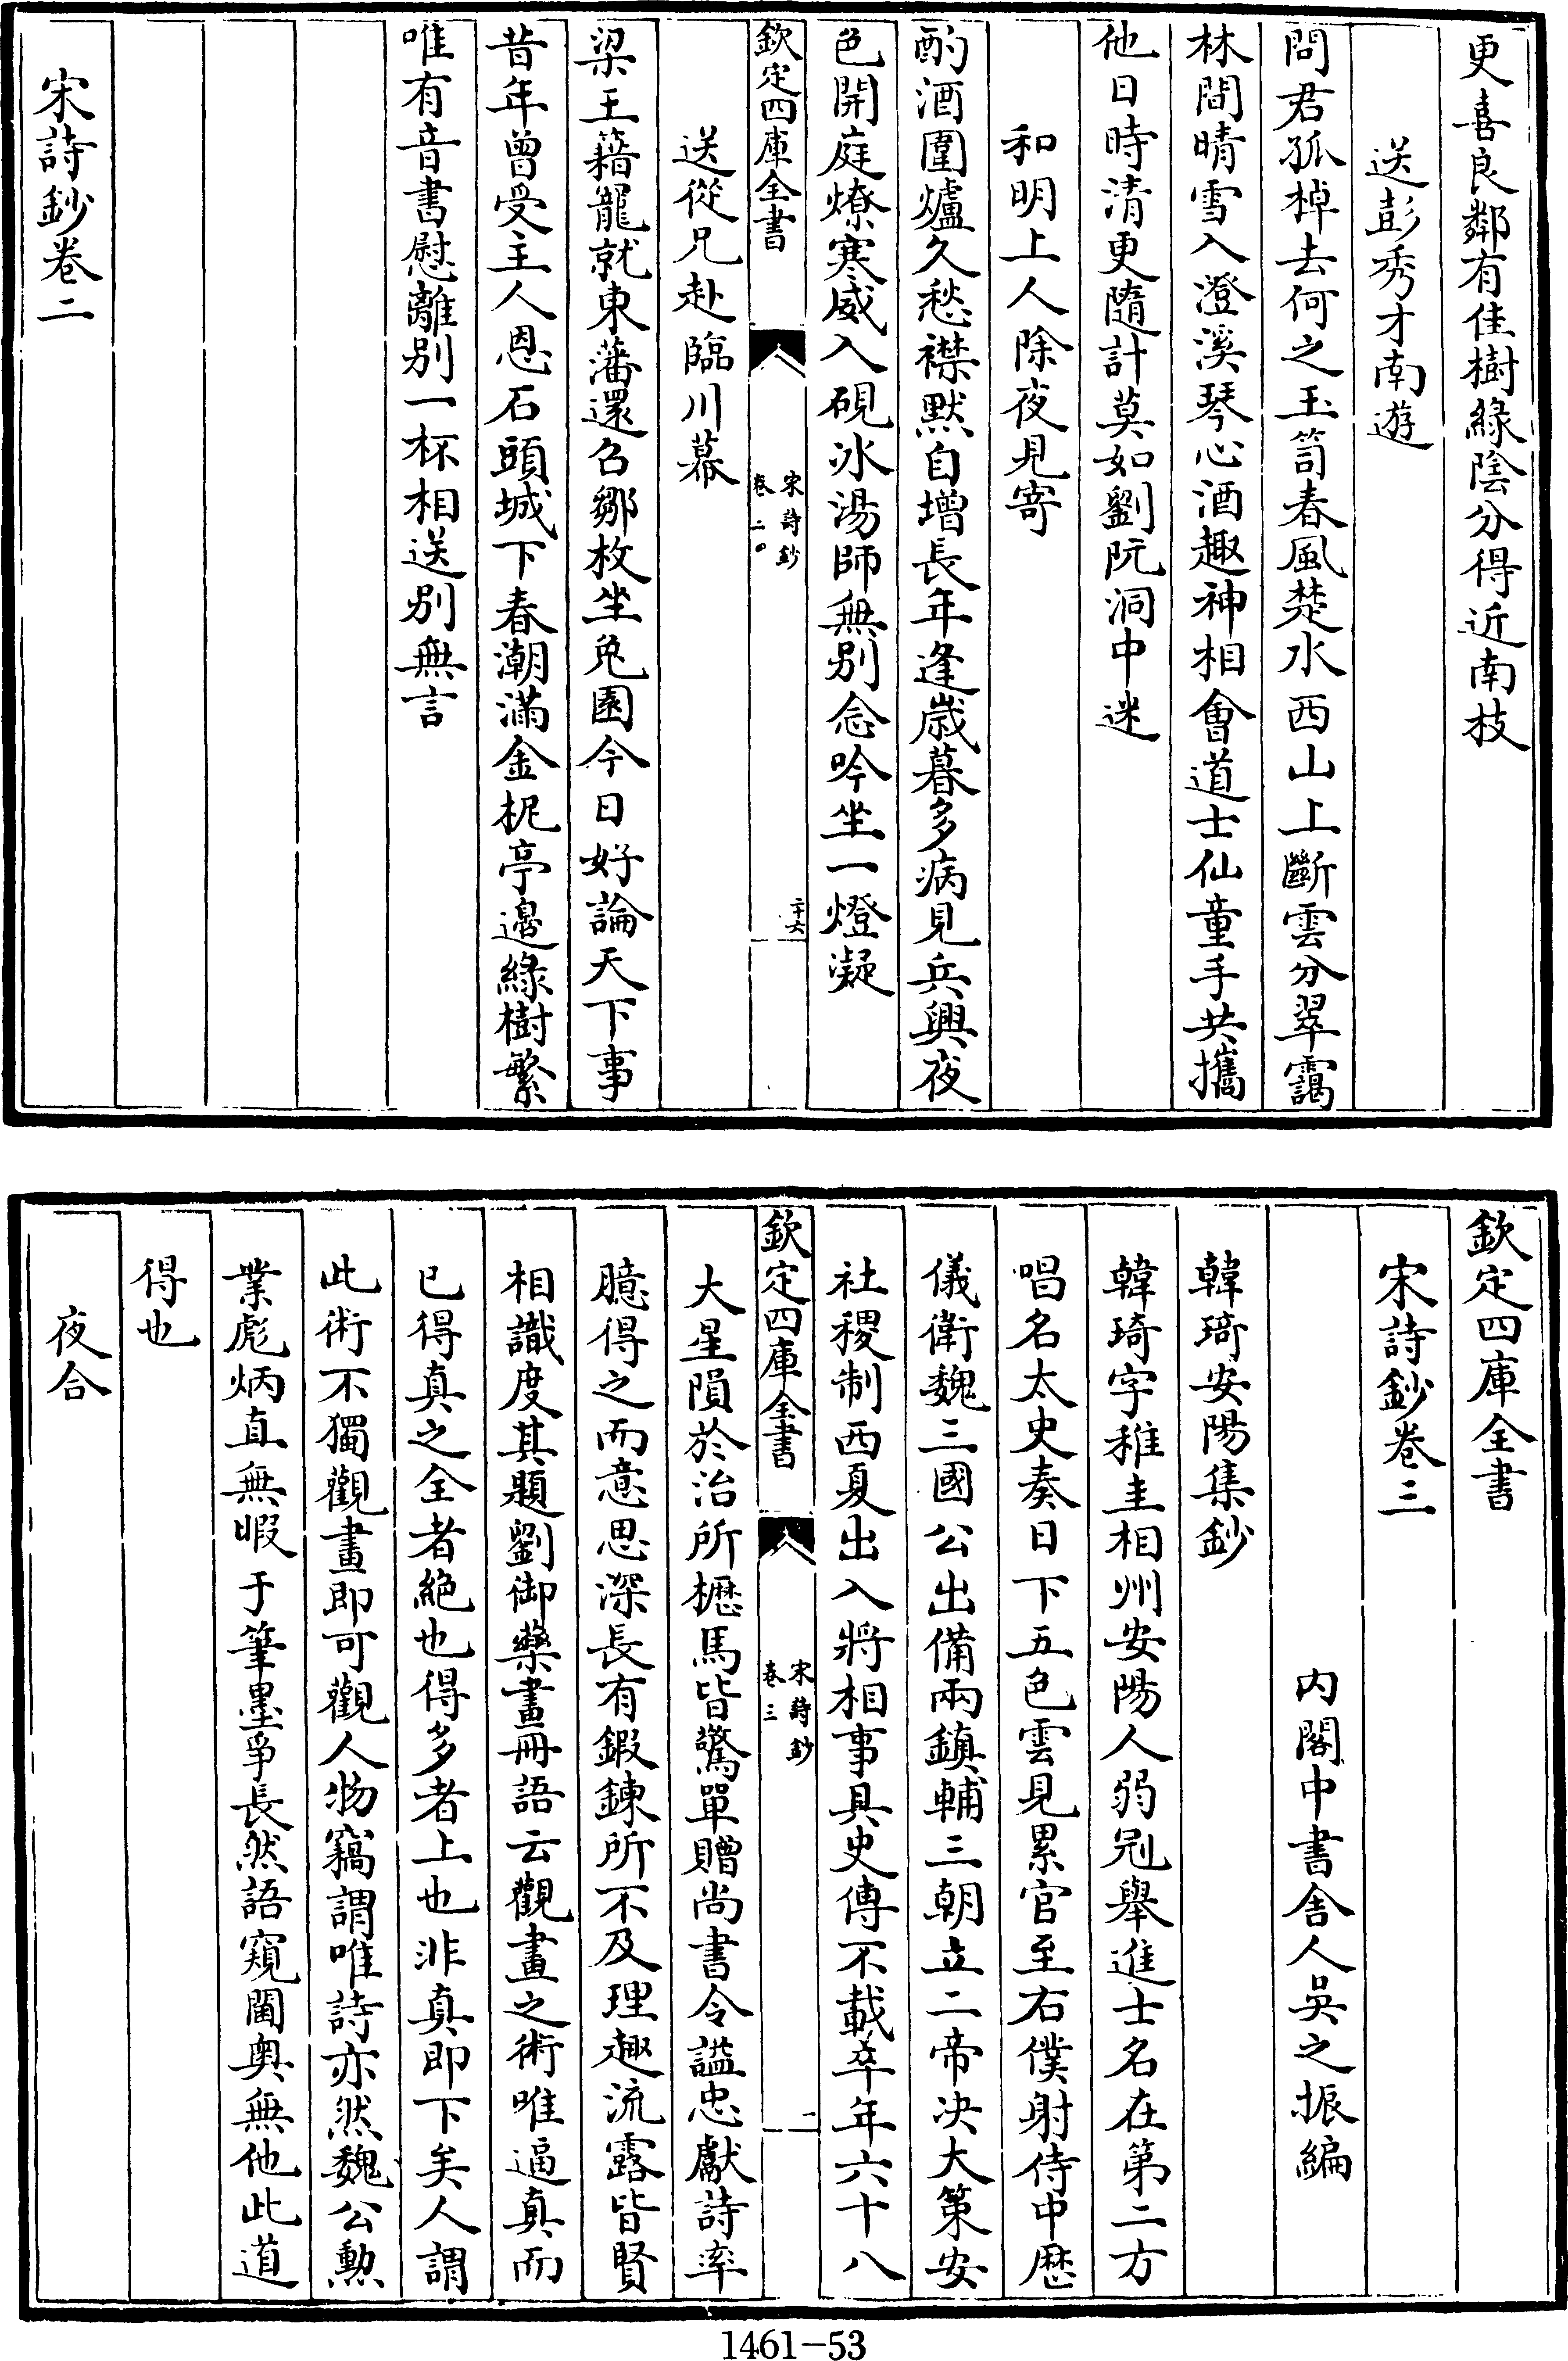 更喜良鄰有佳樹緑陰分得近南枝
送彭秀才南遊
問君孤棹去何之玉笥春風楚水西山上斷雲分翠靄
林間晴雪入澄溪琴心酒趣神相會道士仙童手共攜
他日時清更隨計莫如劉阮洞中迷
和明上人除夜見寄
酌酒圍爐久愁襟默自增長年逢歲暮多病見兵興夜
色開庭燎寒威入硯冰湯師無别念吟坐一燈凝
欽定四庫全書
宋詩鈔
卷二
二十六
送從兄赴臨川幕
梁王籍寵就東藩還召鄒枚坐兎園今日好論天下事
昔年曾受主人恩石頭城下春潮滿金柅亭邊緑樹繁
唯有音書慰離别一杯相送别無言
宋詩鈔卷二
欽定四庫全書
宋詩鈔卷三
内閣中書舍人吳之振編
韓琦安陽集鈔
韓琦字稚圭相州安陽人弱冠舉進士名在第二方
唱名太史奏日下五色雲見累官至右僕射侍中歴
儀衛魏三國公出備兩鎮輔三朝立二帝决大策安
社稷制西夏出入將相事具史傳不載卒年六十八
欽定四庫全書
宋詩鈔
卷三
一
大星隕於治所櫪馬皆驚單贈尚書令謚忠獻詩率
臆得之而意思深長有鍛鍊所不及理趣流露皆賢
相識度其題劉御藥畫冊語云觀畫之術唯逼真而
已得真之全者絶也得多者上也非真即下矣人謂
此術不獨觀畫即可觀人物竊謂唯詩亦然魏公勲
業彪炳直無暇于筆墨爭長然語窺閫奥無他此道
得也
夜合
1461-53